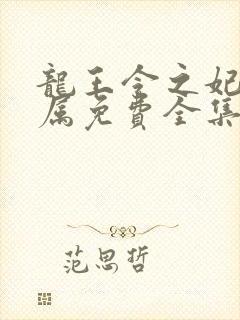 龍王令之妃
属免費全集
范思哲